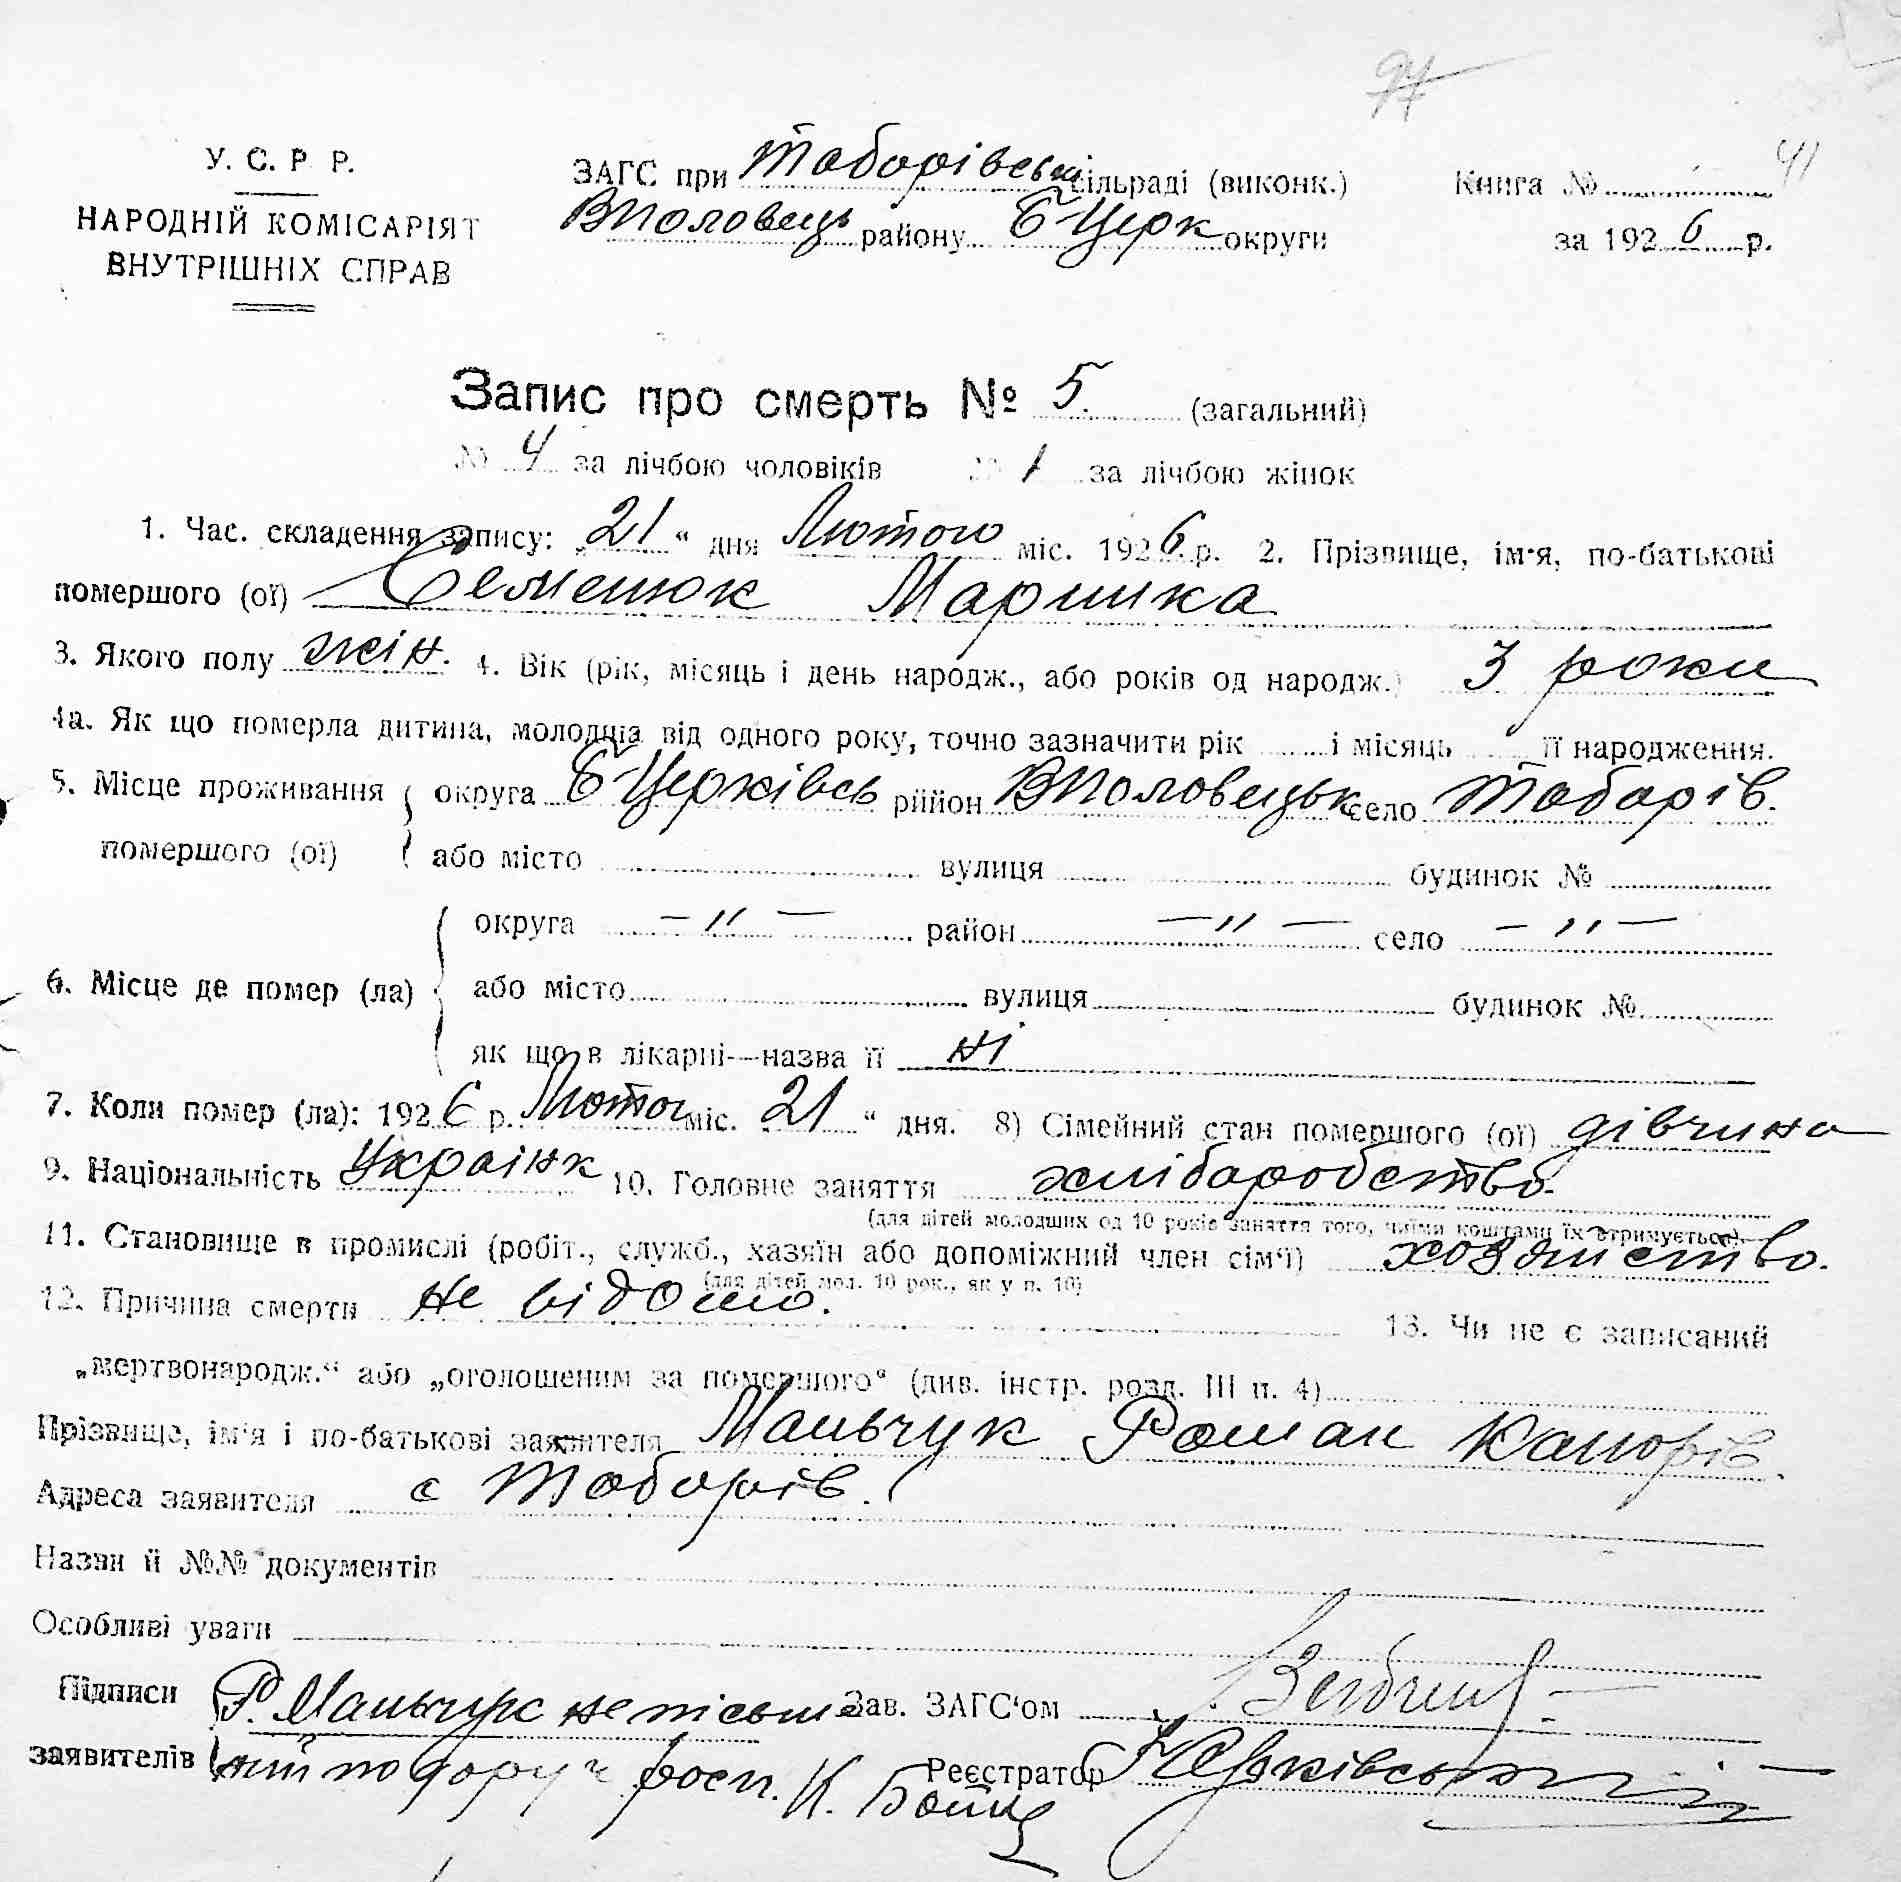 97
41
У. С. Р. Р.
НАРОДНІЙ КОМІСАРІЯТ
ВНУТРІШНІХ СПРАВ
ЗАГС при Таборівськ сільраді (виконк.)
ВПоловець району Б-Церк округи
Книга №
за 1926 р.
Запис про смерть № 5. (загальний)
№ 4 за лічбою чоловіків № 1 за лічбою жінок
1. Час. складення запису: „21“ дня Лютого міс. 1926 р. 2. Прізвище, ім'я, по-батькові
помершого (ої) Семенюк Маринка
3. Якого полу жін. 4. Вік (рік, місяць і день народж., або років од народж.) 3 роки
4а. Як що померла дитина, молодша від одного року, точно зазначити рік і місяць її народження.
5. Місце проживання помершого (ої) округа Б-Церківсь район ВПоловецьк село Таборів.
або місто вулиця будинок №
6. Місце де помер (ла) округа — " — район — " — село — " —
або місто вулиця будинок №
як що в лікарні—назва її ні
7. Коли помер (ла): 1926 р. Лютог міс. „21“ дня. 8) Сімейний стан помершого (ої) дівчина
9. Національність Українк 10. Головне заняття хліборобство.
(для дітей молодших од 10 років заняття того, чиїми коштами їх отримується).
11. Становище в промислі (робіт., служб., хазяїн або допоміжний член сім'ї) хозяйство.
(для дітей мол. 10 рок., як у п. 10)
12. Причина смерти не відомо. 13. Чи не є записаний
„мертвонародж.“ або „оголошеним за помершого“ (див. інстр. розд. III п. 4)
Прізвище, ім'я і по-батькові заявителя Мальчук Роман
Адреса заявителя с Таборів.
Назви й №№ документів
Особливі уваги
Підписи заявителів Р. Мальчук не письмен
ний по доруч росп. К. Бойко
Зав. ЗАГС'ом
Реєстратор